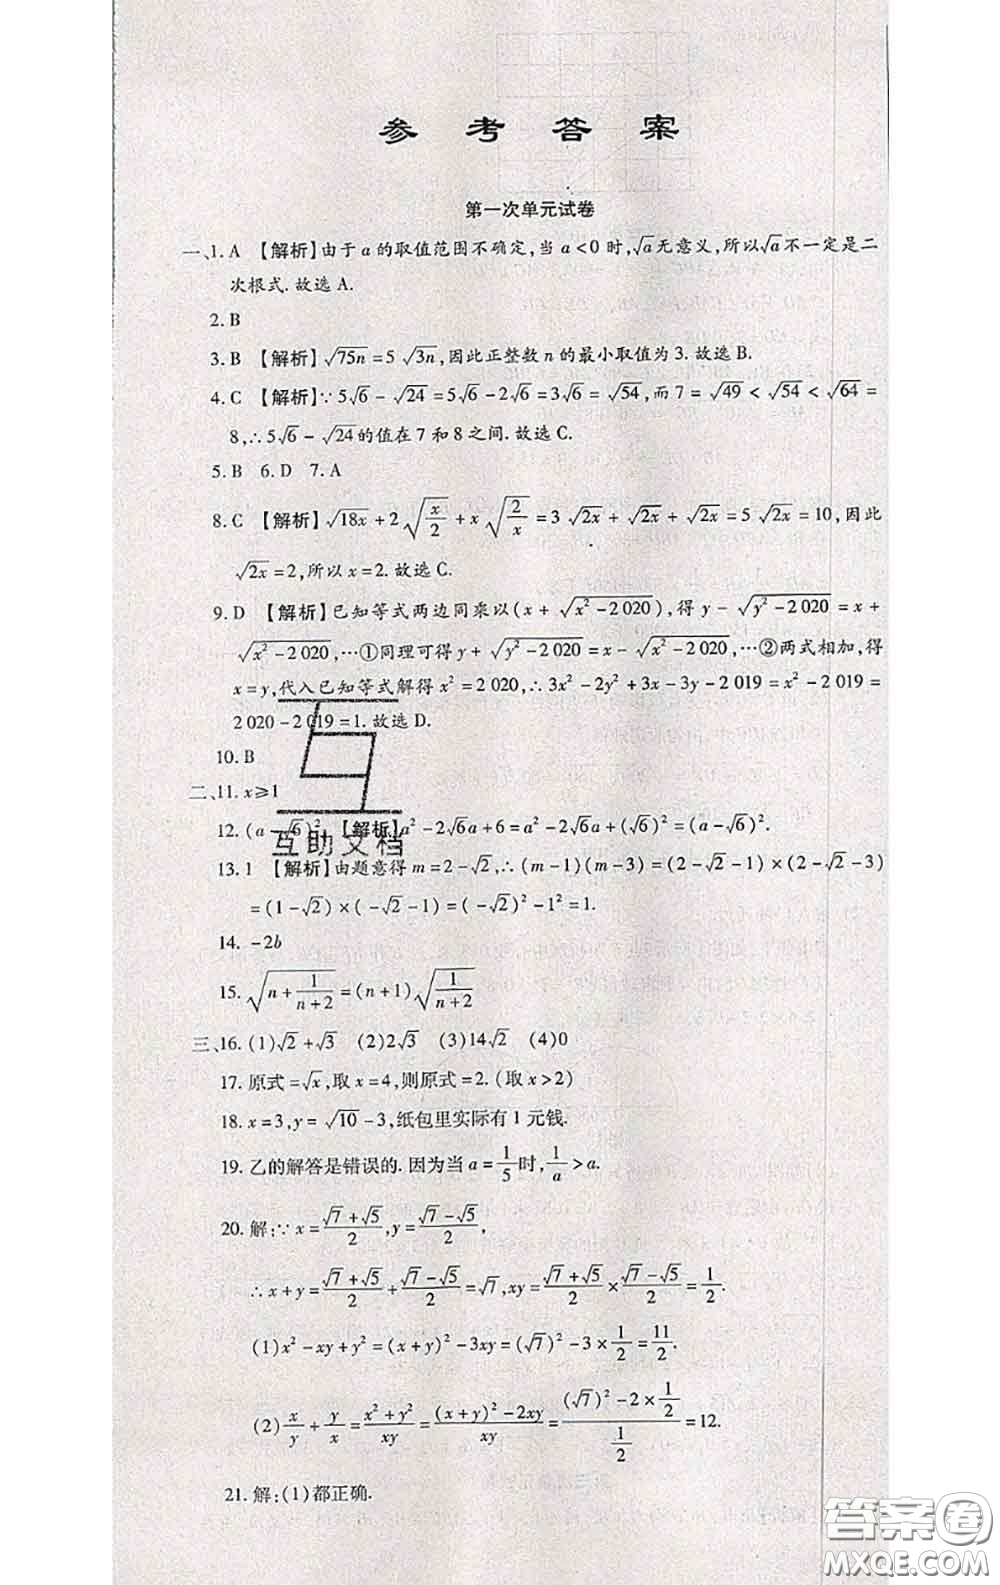 参考答案
第一次单元试卷
一、1. A 【解析】由于 a 的取值范围不确定,当 a<0 时,√a无意义,所以√a不一定是二
次根式. 故选 A.
2. B
3. B 【解析】√(75n)=5√(3n),因此正整数 n 的最小取值为 3. 故选 B.
4. C 【解析】∵5√6-√24=5√6-2√6=3√6=√54,而 7=√49<√54<√64=
8,∴5√6-√24的值在 7 和 8 之间. 故选 C.
5. B 6. D 7. A
8. C 【解析】√(18x)+2√(x/2)+x√(2/x)=3√(2x)+√(2x)+√(2x)=5√(2x)=10,因此
√(2x)=2,所以 x=2. 故选 C.
9. D 【解析】已知等式两边同乘以(x+√(x²-2 020)),得 y-√(y²-2 020)=x+
√(x²-2 020),…①同理可得 y+√(y²-2 020)=x-√(x²-2 020),…②两式相加,得
x=y,代入已知等式解得 x²=2 020,∴3x²-2y²+3x-3y-2 019=x²-2 019=
2 020-2 019=1. 故选 D.
10. B
二、11. x≥1
12. (a-√6)² 【解析】a²-2√6a+6=a²-2√6a+(√6)²=(a-√6)².
互助文档
13. 1 【解析】由题意得 m=2-√2,∴(m-1)(m-3)=(2-√2-1)×(2-√2-3)
=(1-√2)×(-√2-1)=(-√2)²-1²=1.
14. -2b
15. √(n+1/(n+2))=(n+1)√(1/(n+2))
三、16. (1)√2+√3 (2)2√3 (3)14√2 (4)0
17. 原式=√x,取 x=4,则原式=2. (取 x>2)
18. x=3,y=√10-3,纸包里实际有 1 元钱.
19. 乙的解答是错误的. 因为当 a=1/5时,1/a>a.
20. 解:∵x=(√7+√5)/2,y=(√7-√5)/2,
∴x+y=(√7+√5)/2+(√7-√5)/2=√7,xy=(√7+√5)/2×(√7-√5)/2=1/2.
(1)x²-xy+y²=(x+y)²-3xy=(√7)²-3×1/2=11/2.
(2)x/y+y/x=(x²+y²)/xy=((x+y)²-2xy)/xy=((√7)²-2×1/2)/(1/2)=12.
21. 解:(1)都正确.
答案圈
MXQE.COM